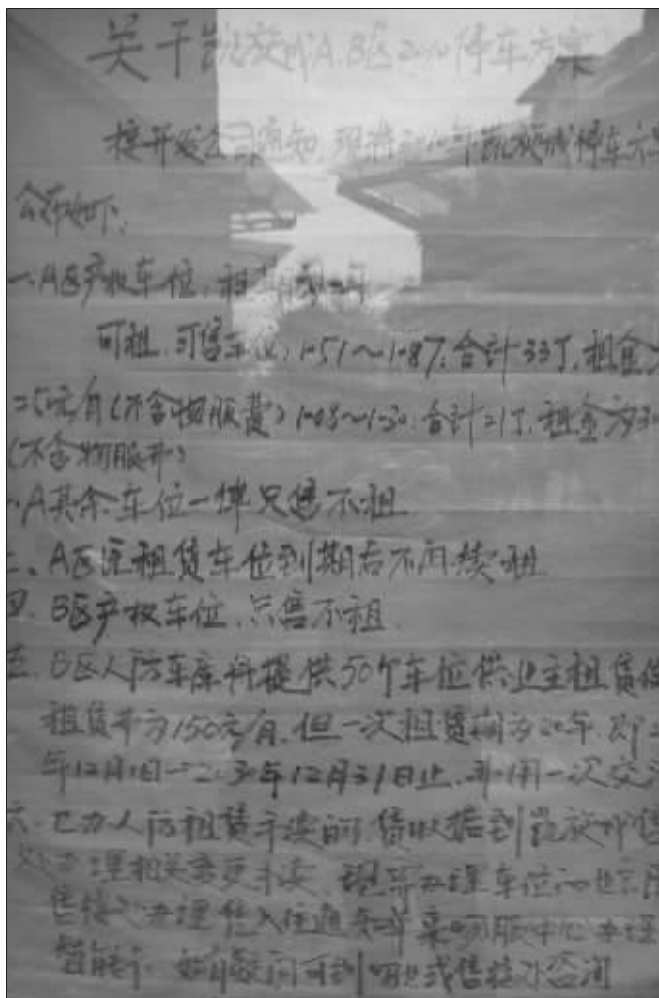 关于凯旋城A.B区2010停车方案
接开发公司通知,现将2010年凯旋城停车方
公布如下:
一、A区产权车位,租期
可租、可售车位,1-51~1-87.合计33个,租金为
250元/月(不含物服费)1-08~1-30.合计21个,租金为30
(不含物服费)
、A其余车位一律只售不租
、A区 租赁车位到期后不再续租
四、B区产权车位、只售不租.
五、B区人防车库将提供50个车位供业主租赁使
租赁费为150元/月,但一次租赁期为20年,即2
年12月1日—2030年12月31日止,费用一次交
六、已办人防租赁手续的 凭收据到凯旋城售
办理相关变更手续、 办理车位的业主
售楼处办理 入住通知单来物服中心办理
如有疑问可到物业或售楼处咨询